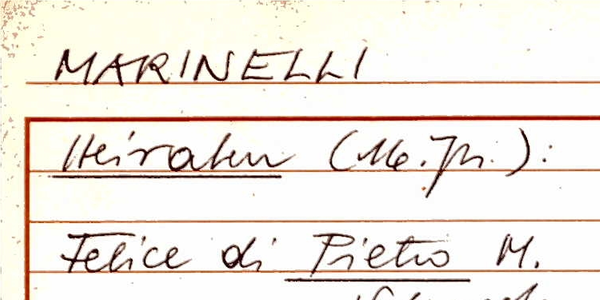 MARINELLI
Heiraten (16. Jh.):
Felice di Pietro M.